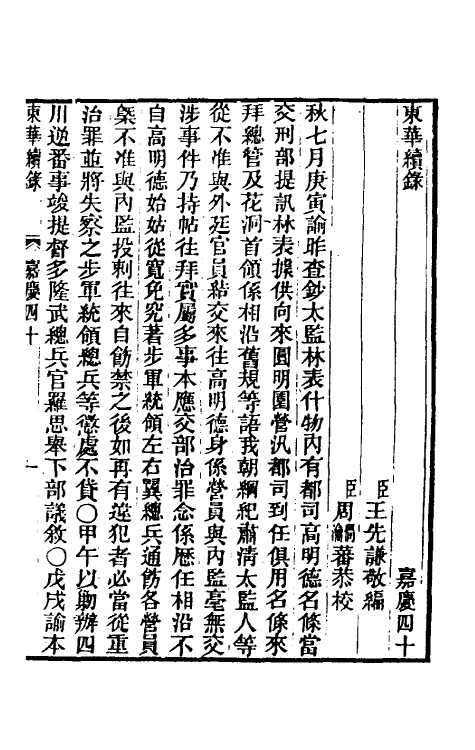 東華續錄　嘉慶四十
臣王先謙敬編
臣周蕃恭校
秋七月庚寅諭昨查鈔太監林表什物內有都司高明德名條當
交刑部提訊林表據供向來圓明園營汛都司到任俱用名條來
拜總管及花洞首領係相沿舊規等語我朝綱紀肅清太監人等
從不准與外廷官員結交來往高明德身係營員與內監毫無交
涉事件乃持帖往拜實屬多事本應交部治罪念係歷任相沿不
自高明德始姑從寬免究著步軍統領左右翼總兵通飭各營員
槩不准與內監投刺往來自飭禁之後如再有違犯者必當從重
治罪並將失察之步軍統領總兵等懲處不貸○甲午以勦辦四
川逆番事竣提督多隆武總兵官羅思舉下部議敘○戊戌諭本
東華續錄　嘉慶四十　一